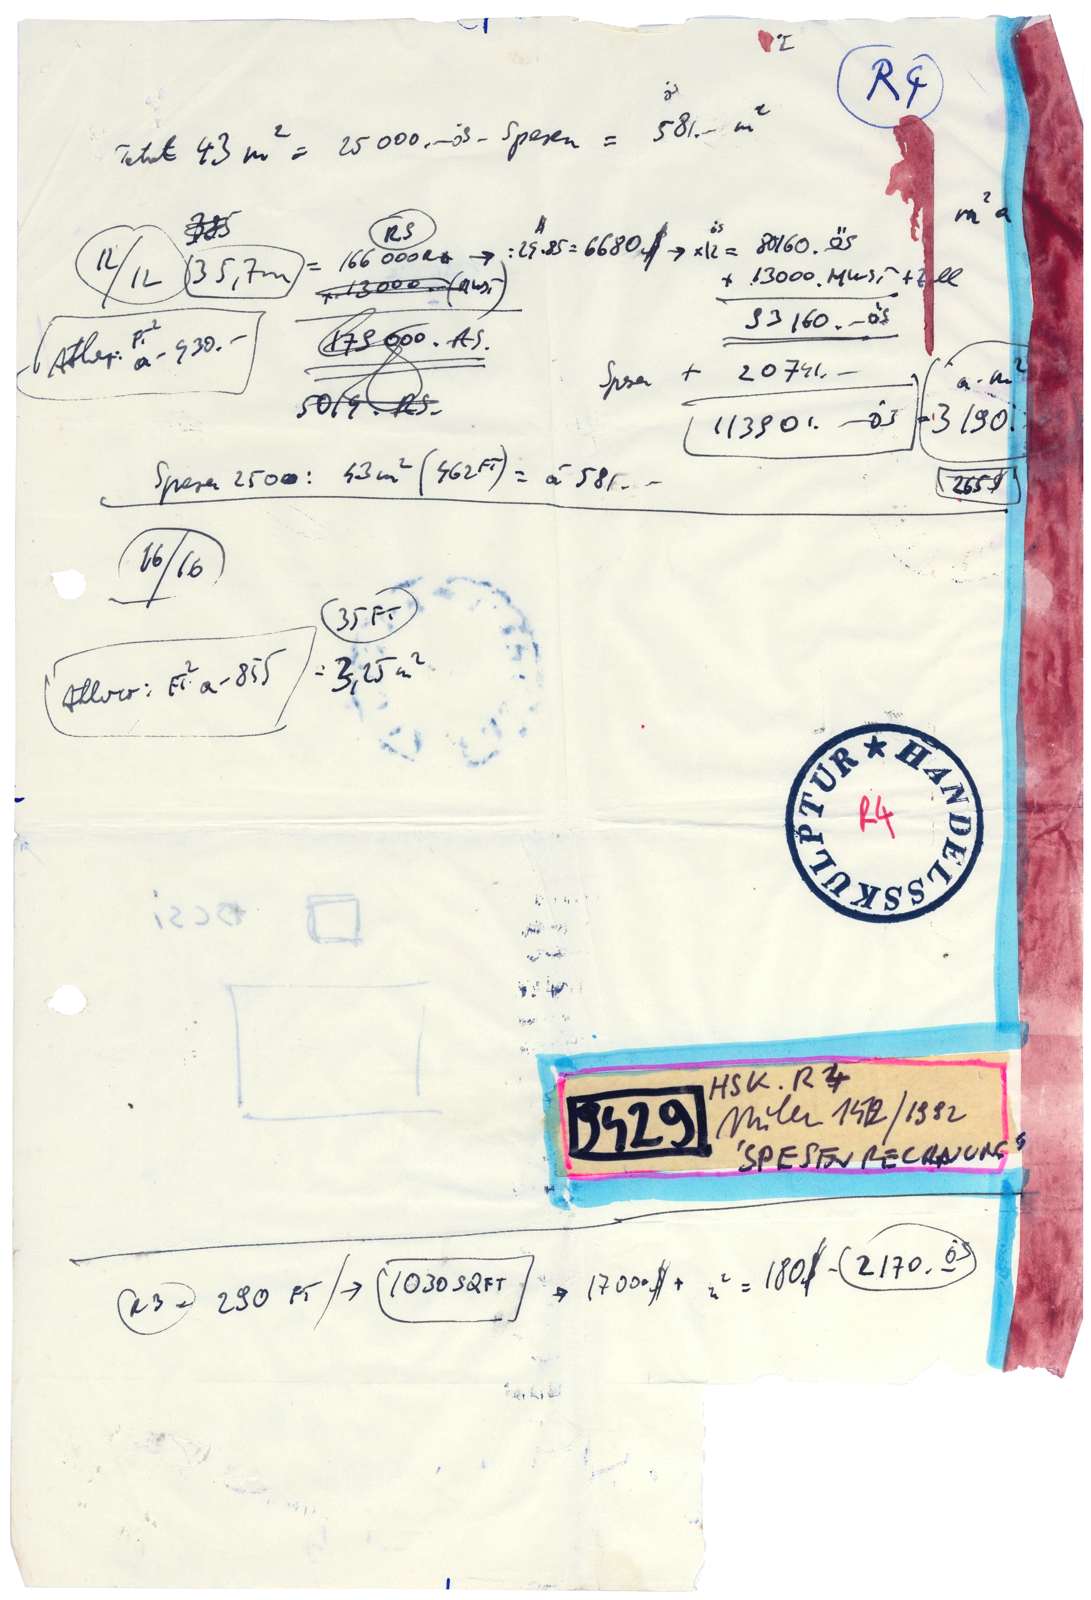 R4
Total 43 m² = 25 000.- öS - Spesen = 581.- m²
öS
m² a
385
RS
12/12 35,7m = 166 000 RS → : 24.85 = 6680.$ → x12 = 80160. öS
+ 13000.- (MwSt) + 13000. MWST + Zoll
179 000. RS. 93160.- öS
Allover: FT² a - 430.-
5014. RS.
Spesen + 20741.-
113901.- öS = 3190.
a. m²
265$
Spesen 2500: 43 m² (462 FT) = a 581.-
16/16
35 FT
Allover: FT² a - 855 = 3,25 m²
HANDELSSKULPTUR
R4
9429
HSK. R4
1992
'SPESENRECHNUNG'
R3 - 290 FT / → 1030 SQFT → 17000.$ + m² = 180$ - 2170. öS